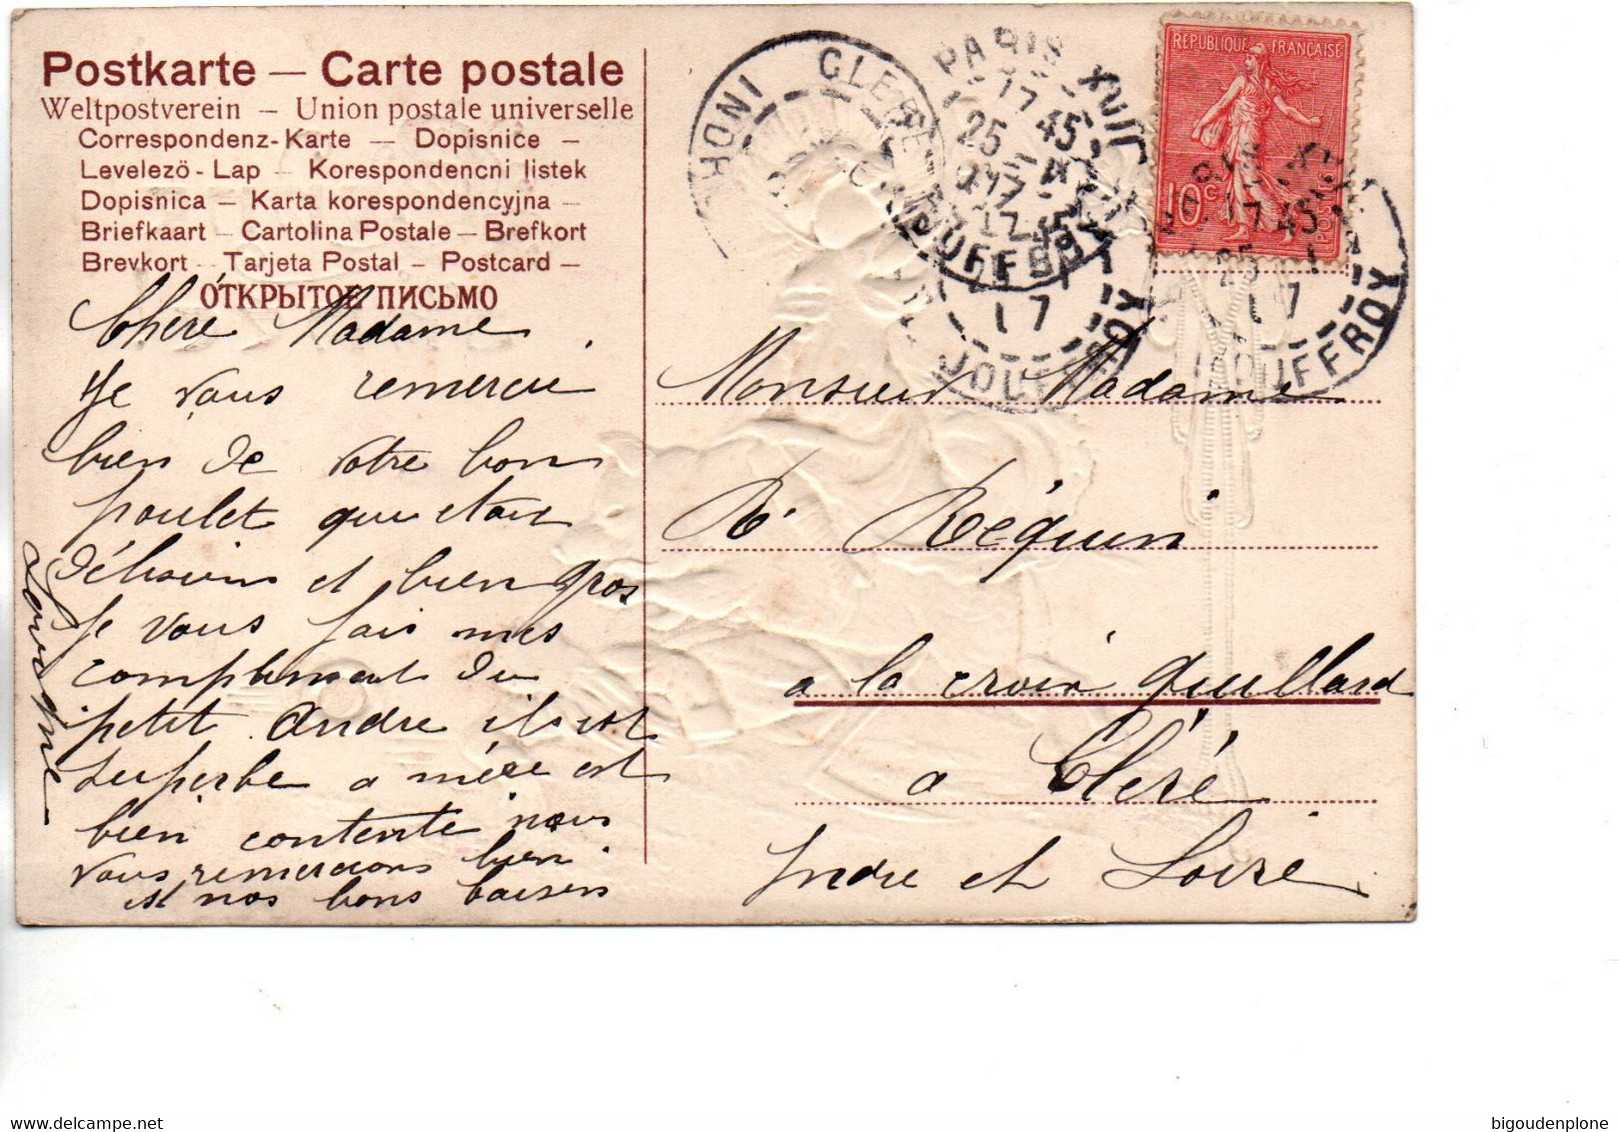 Postkarte — Carte postale
Weltpostverein — Union postale universelle
Correspondenz-Karte — Dopisnice —
Levelezö-Lap — Korespondencni listek
Dopisnica — Karta korespondencyjna —
Briefkaart — Cartolina Postale — Brefkort
Brevkort — Tarjeta Postal — Postcard —
ОТКРЫТОЕ ПИСЬМО
Chere Madame
Je vous remercie
bien de votre bon
poulet qui etais
délisieux et bien gros
Je vous fais mes
compliment du
petit andre il est
superbe a mére est
bien contente nous
vous remercions bien
et nos bons baisers
RÉPUBLIQUE FRANÇAISE
10 c POSTES
PARIS XVII
17 45
25
17
R. JOUFFROY
CLERE
Monsieur Madame
R. Réquin
a la croix quillard
a Cleré
Indre et Loire
bigoudenplone